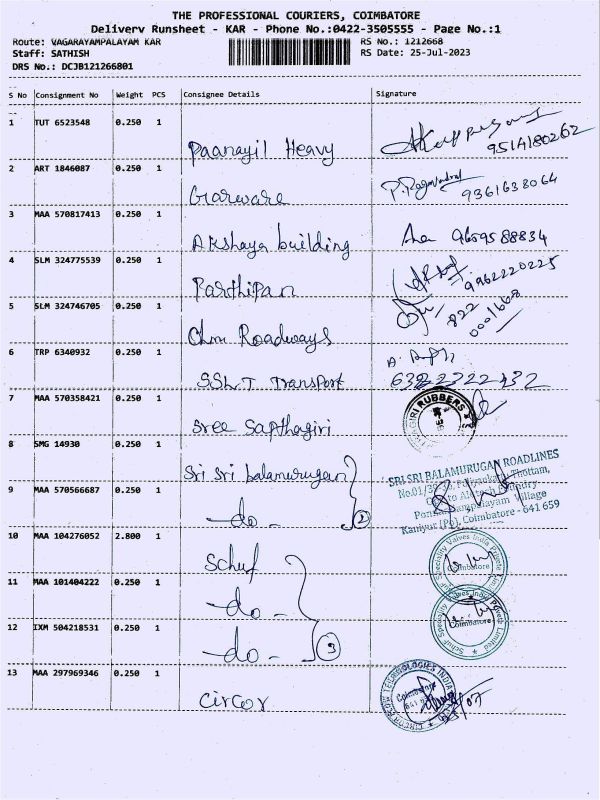 THE PROFESSIONAL COURIERS, COIMBATORE
Delivery Runsheet - KAR - Phone No.:0422-3505555 - Page No.:1
Route: VAGARAYAMPALAYAM KAR
RS No.: 1212668
Staff: SATHISH
RS Date: 25-Jul-2023
DRS No.: DCJB121266801
S No Consignment No Weight PCS Consignee Details Signature
1 TUT 6523548 0.250 1
Paanayil Heavy
9514180262
2 ART 1846087 0.250 1
Garware
9361638064
3 MAA 570817413 0.250 1
Akshaya building
9659588834
4 SLM 324775539 0.250 1
Parthipan
9962220225
5 SLM 324746705 0.250 1
Chm Roadways
822
0001668
6 TRP 6340932 0.250 1
SSLT Transport
7 MAA 570358421 0.250 1
Sree Sapthagiri
RUBBERS
8 SMG 14930 0.250 1
Sri Sri balamurugan
SRI SRI BALAMURUGAN ROADLINES
Thottam,
9 MAA 570566687 0.250 1
-do- 2
Village
Kaniyur (Po), Coimbatore - 641 659
10 MAA 104276052 2.800 1
Schuf
Speciality Valves India Private
Coimbatore
11 MAA 101404222 0.250 1
-do-
12 IXM 504218531 0.250 1
-do- 3
Schuf Speciality Valves India Private Limited
Coimbatore
13 MAA 297969346 0.250 1
Circor
CIRCOR FLOW TECHNOLOGIES INDIA
Coimbatore
641